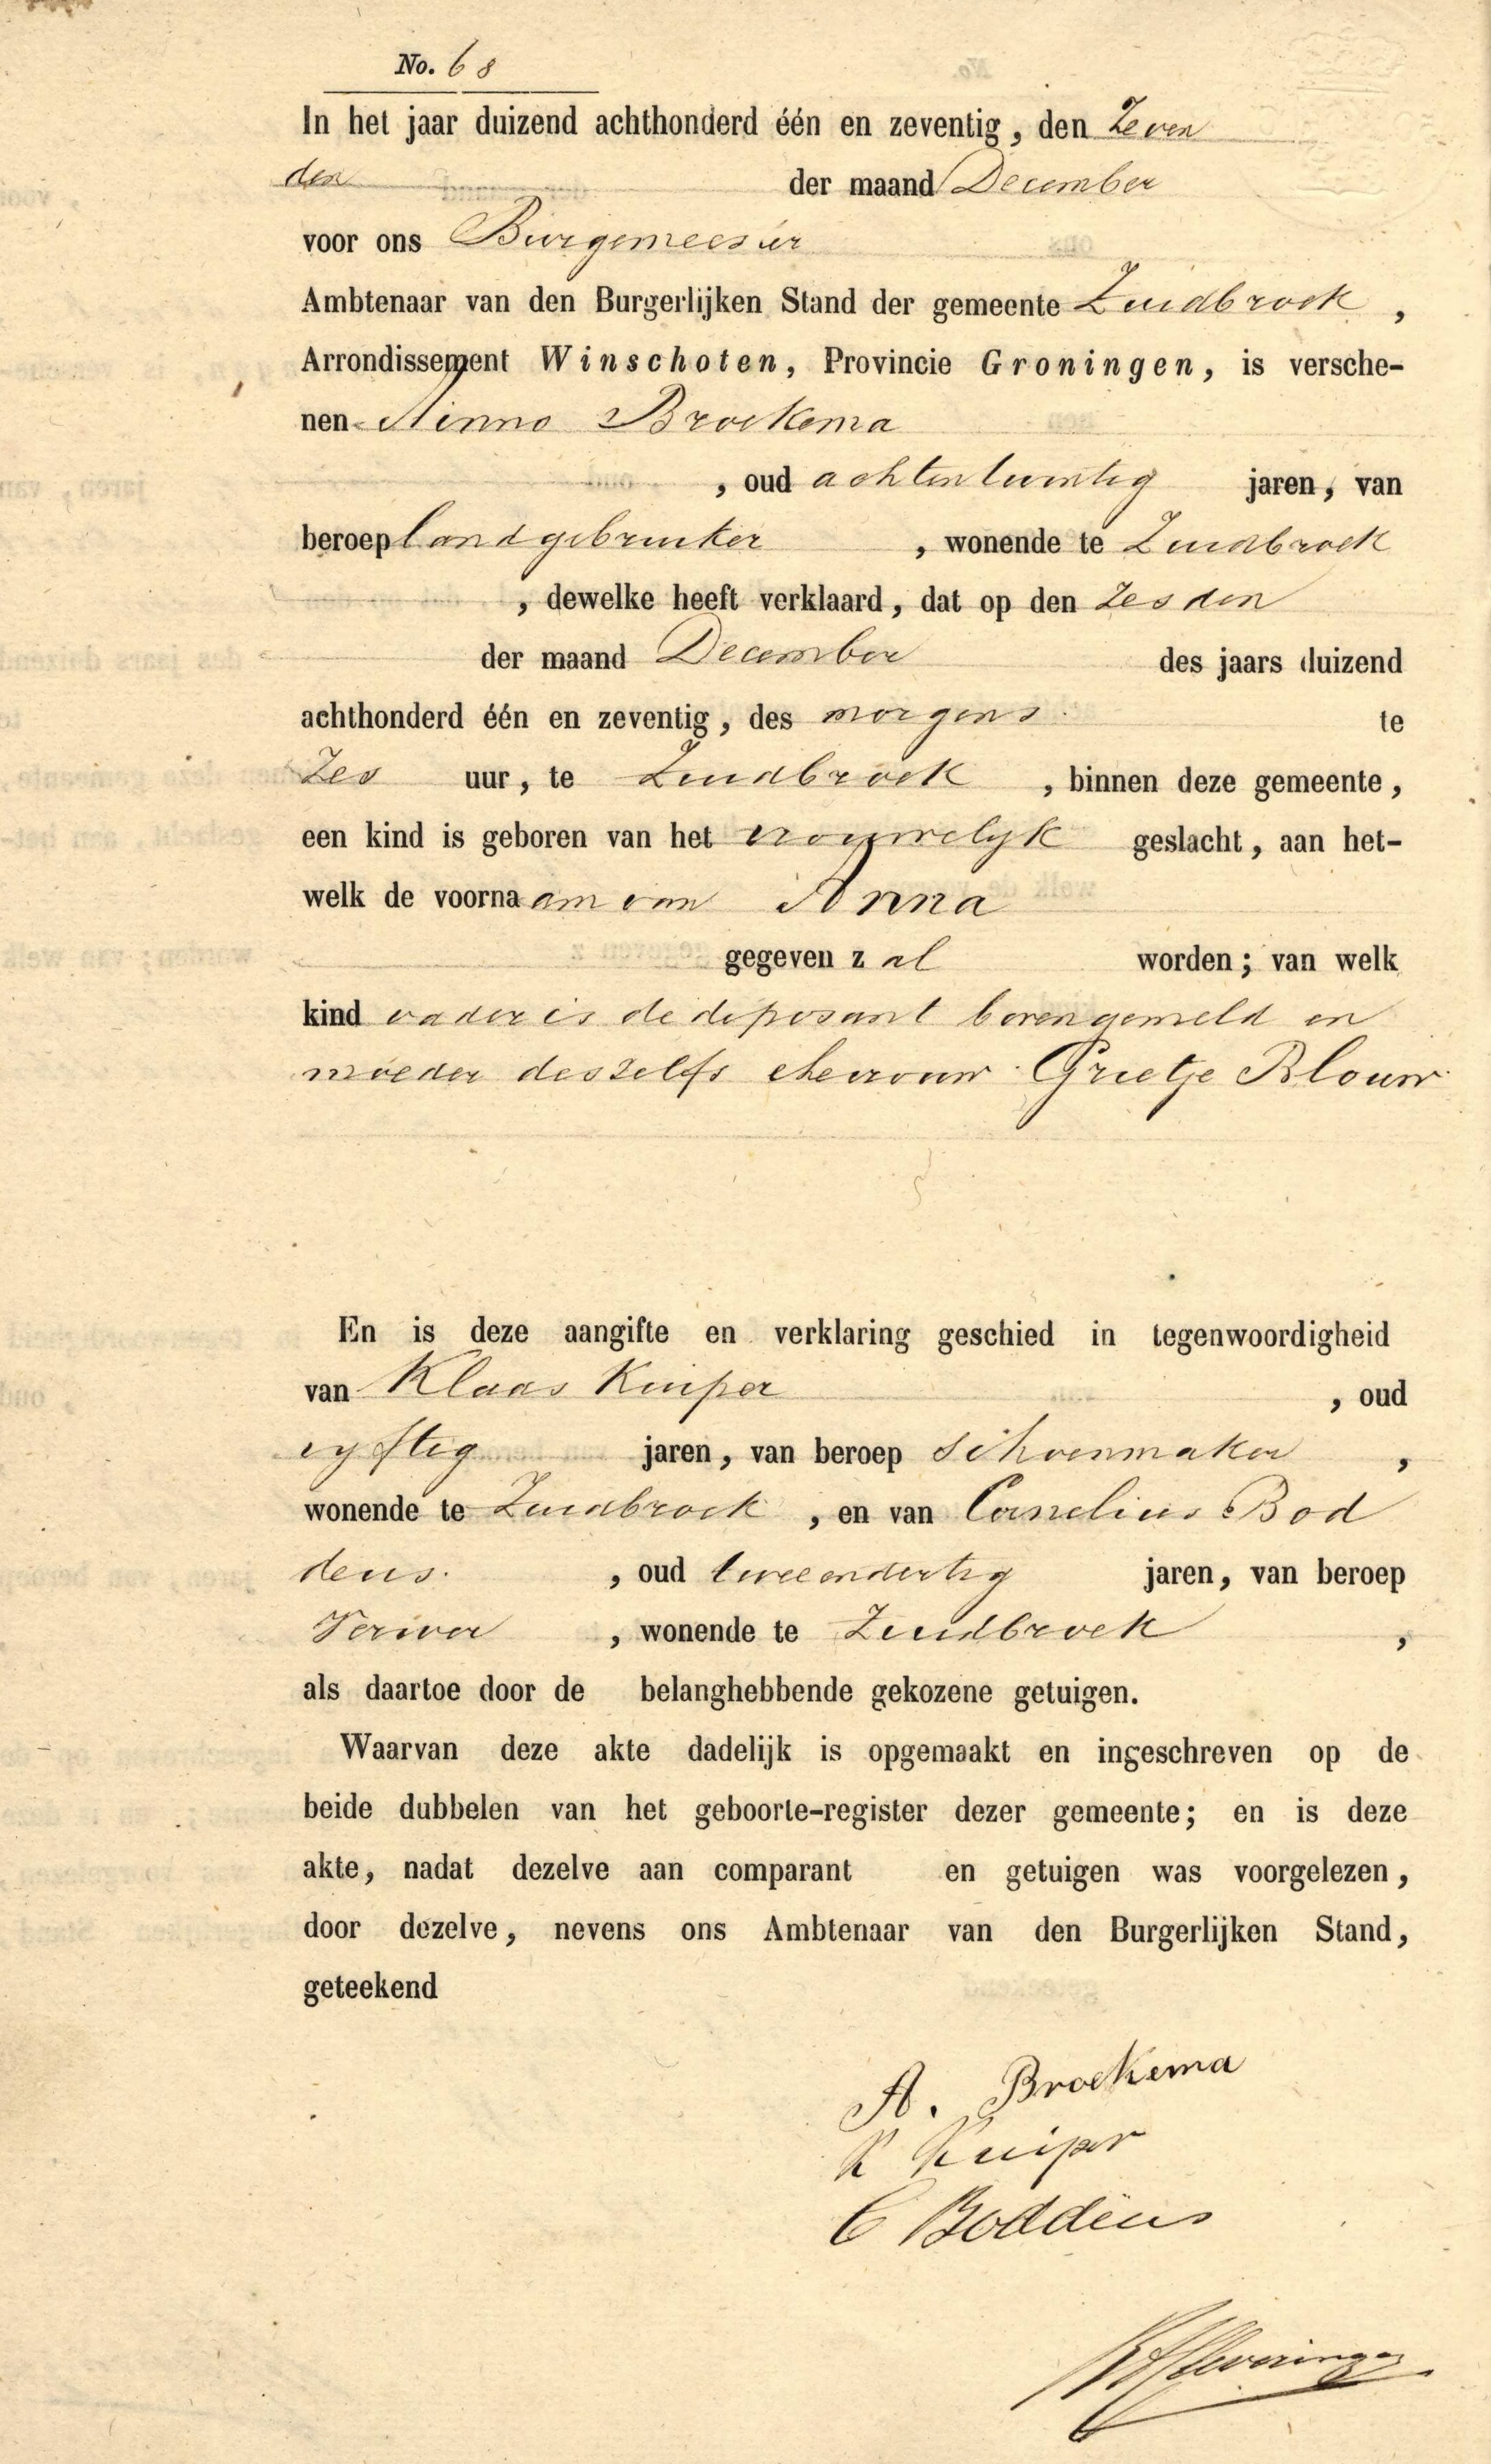 No. 68
In het jaar duizend achthonderd één en zeventig, den Zeven
den der maand December
voor ons Burgemeester
Ambtenaar van den Burgerlijken Stand der gemeente Zuidbroek,
Arrondissement Winschoten, Provincie Groningen, is versche-
nen Ainno Broekema
, oud achtentwintig jaren, van
beroep landgebruiker, wonende te Zuidbroek
, dewelke heeft verklaard, dat op den Zesden
der maand December des jaars duizend
achthonderd één en zeventig, des morgens te
Zes uur, te Zuidbroek, binnen deze gemeente,
een kind is geboren van het vrouwelyk geslacht, aan het-
welk de voornaam van Anna
gegeven zal worden; van welk
kind vader is de deposant bovengemeld en
moeder deszelfs ehevrouw Grietje Blouw
En is deze aangifte en verklaring geschied in tegenwoordigheid
van Klaas Kuiper, oud
vyftig jaren, van beroep Schoenmaker,
wonende te Zuidbroek, en van Cornelius Bod
deus, oud tweeendertig jaren, van beroep
Verwer, wonende te Zuidbroek,
als daartoe door de belanghebbende gekozene getuigen.
Waarvan deze akte dadelijk is opgemaakt en ingeschreven op de
beide dubbelen van het geboorte-register dezer gemeente; en is deze
akte, nadat dezelve aan comparant en getuigen was voorgelezen,
door dezelve, nevens ons Ambtenaar van den Burgerlijken Stand,
geteekend
A. Broekema
K Kuiper
C Boddeüs